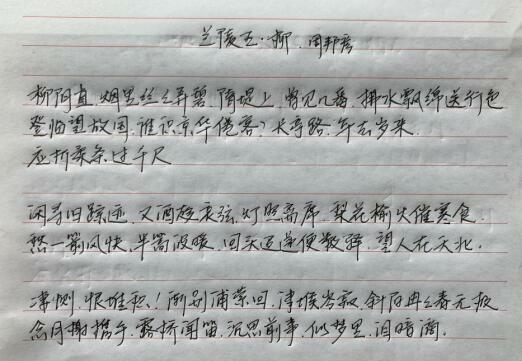 兰陵王·柳 周邦彦
柳阴直，烟里丝丝弄碧，隋堤上，曾见几番，拂水飘绵送行色
登临望故国，谁识京华倦客？长亭路，年去岁来，
应折柔条过千尺
闲寻旧踪迹，又酒趁哀弦，灯照离席，梨花榆火催寒食，
愁一箭风快，半篙波暖，回头迢递便数驿，望人在天北，
凄恻，恨堆积！渐别浦萦回，津堠岑寂，斜阳冉冉春无极
念月榭携手，露桥闻笛，沉思前事，似梦里，泪暗滴